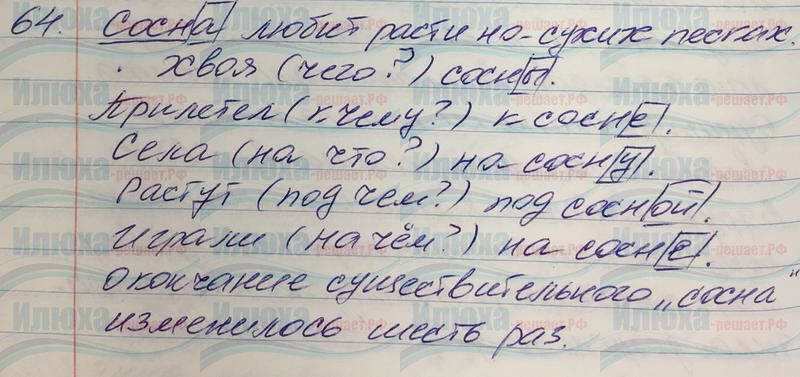 64. Сосна любит расти на сухих песках.
Хвоя (чего?) сосны.
Прилетел (к чему?) к сосне.
Села (на что?) на сосну.
Растут (под чем?) под сосной.
Играли (на чём?) на сосне.
Окончание существительного „сосна"
изменилось шесть раз.